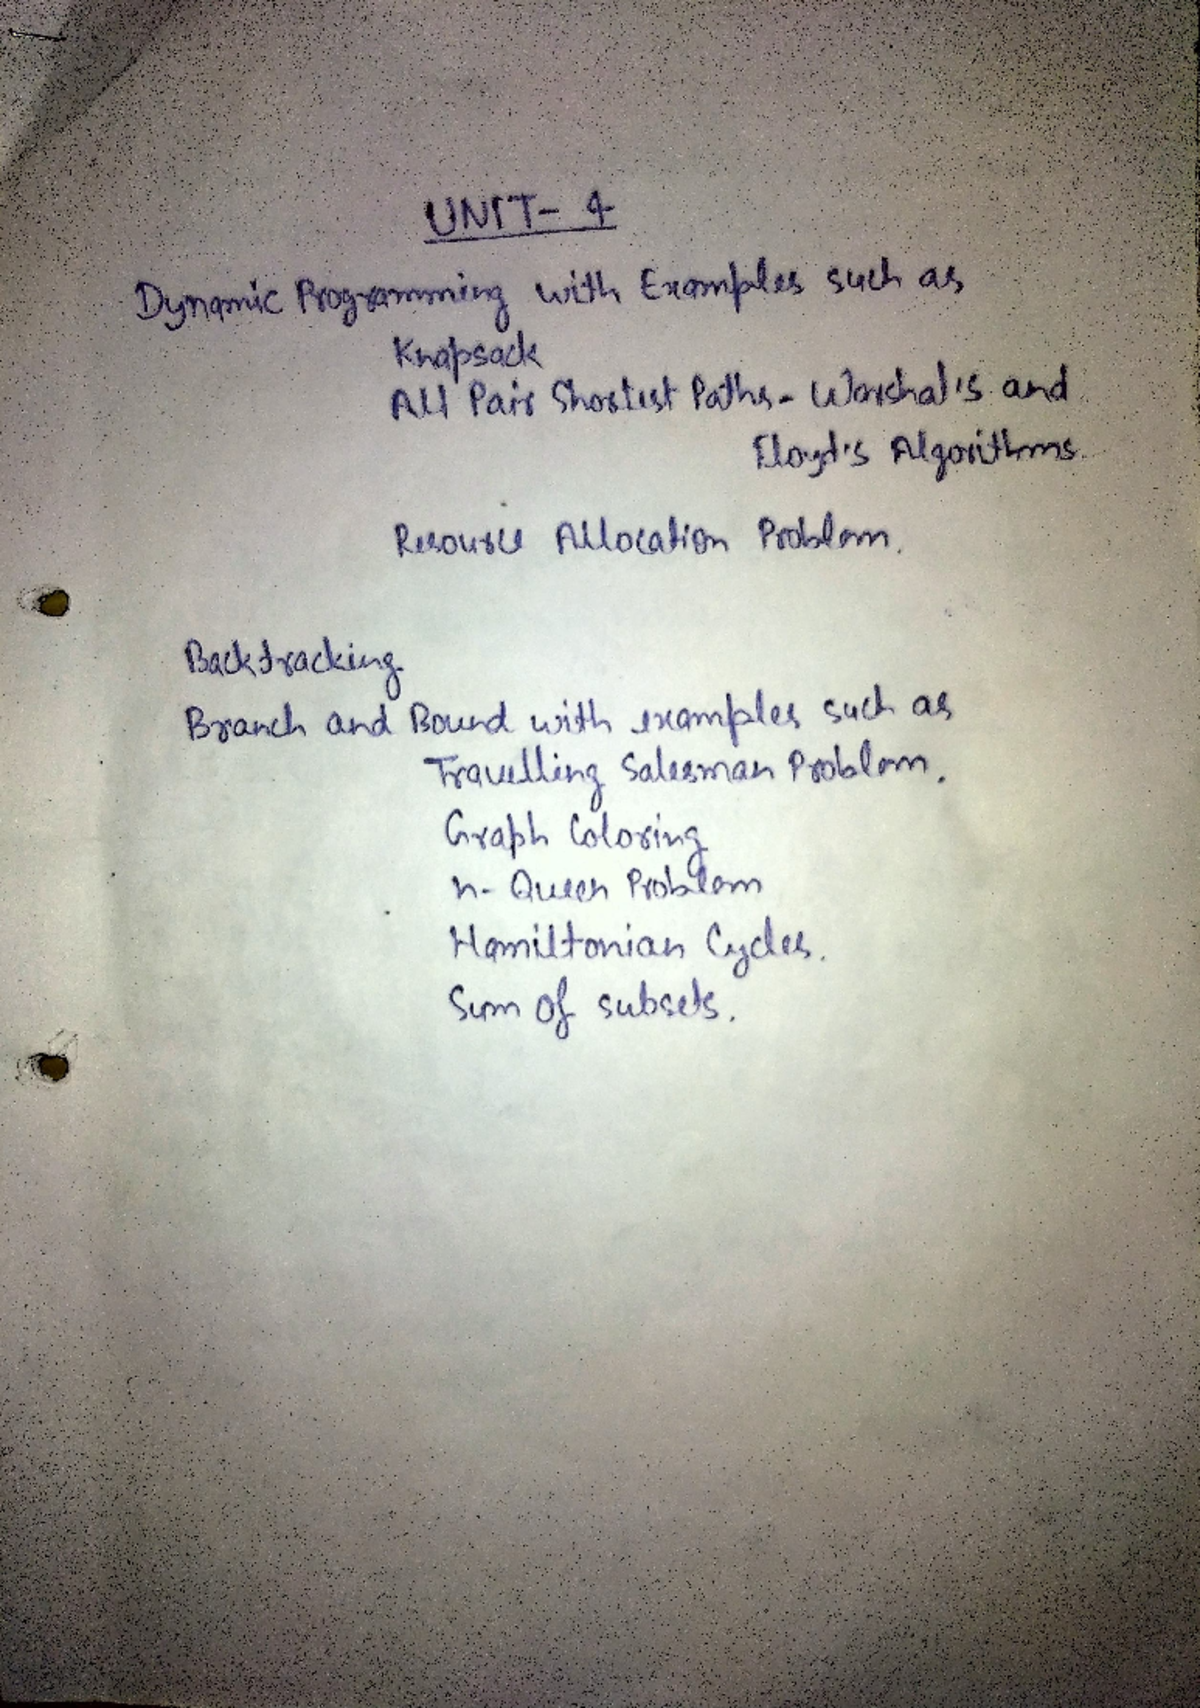 UNIT- 4
Dynamic Programming with Examples such as
Knapsack
All Pair Shortest Paths- Warshal's and
Floyd's Algorithms.
Resource Allocation Problem.
Backtracking
Branch and Bound with examples such as
Travelling Salesman Problem.
Graph Coloring
n- Queen Problem
Hamiltonian Cycles.
Sum of subsets.